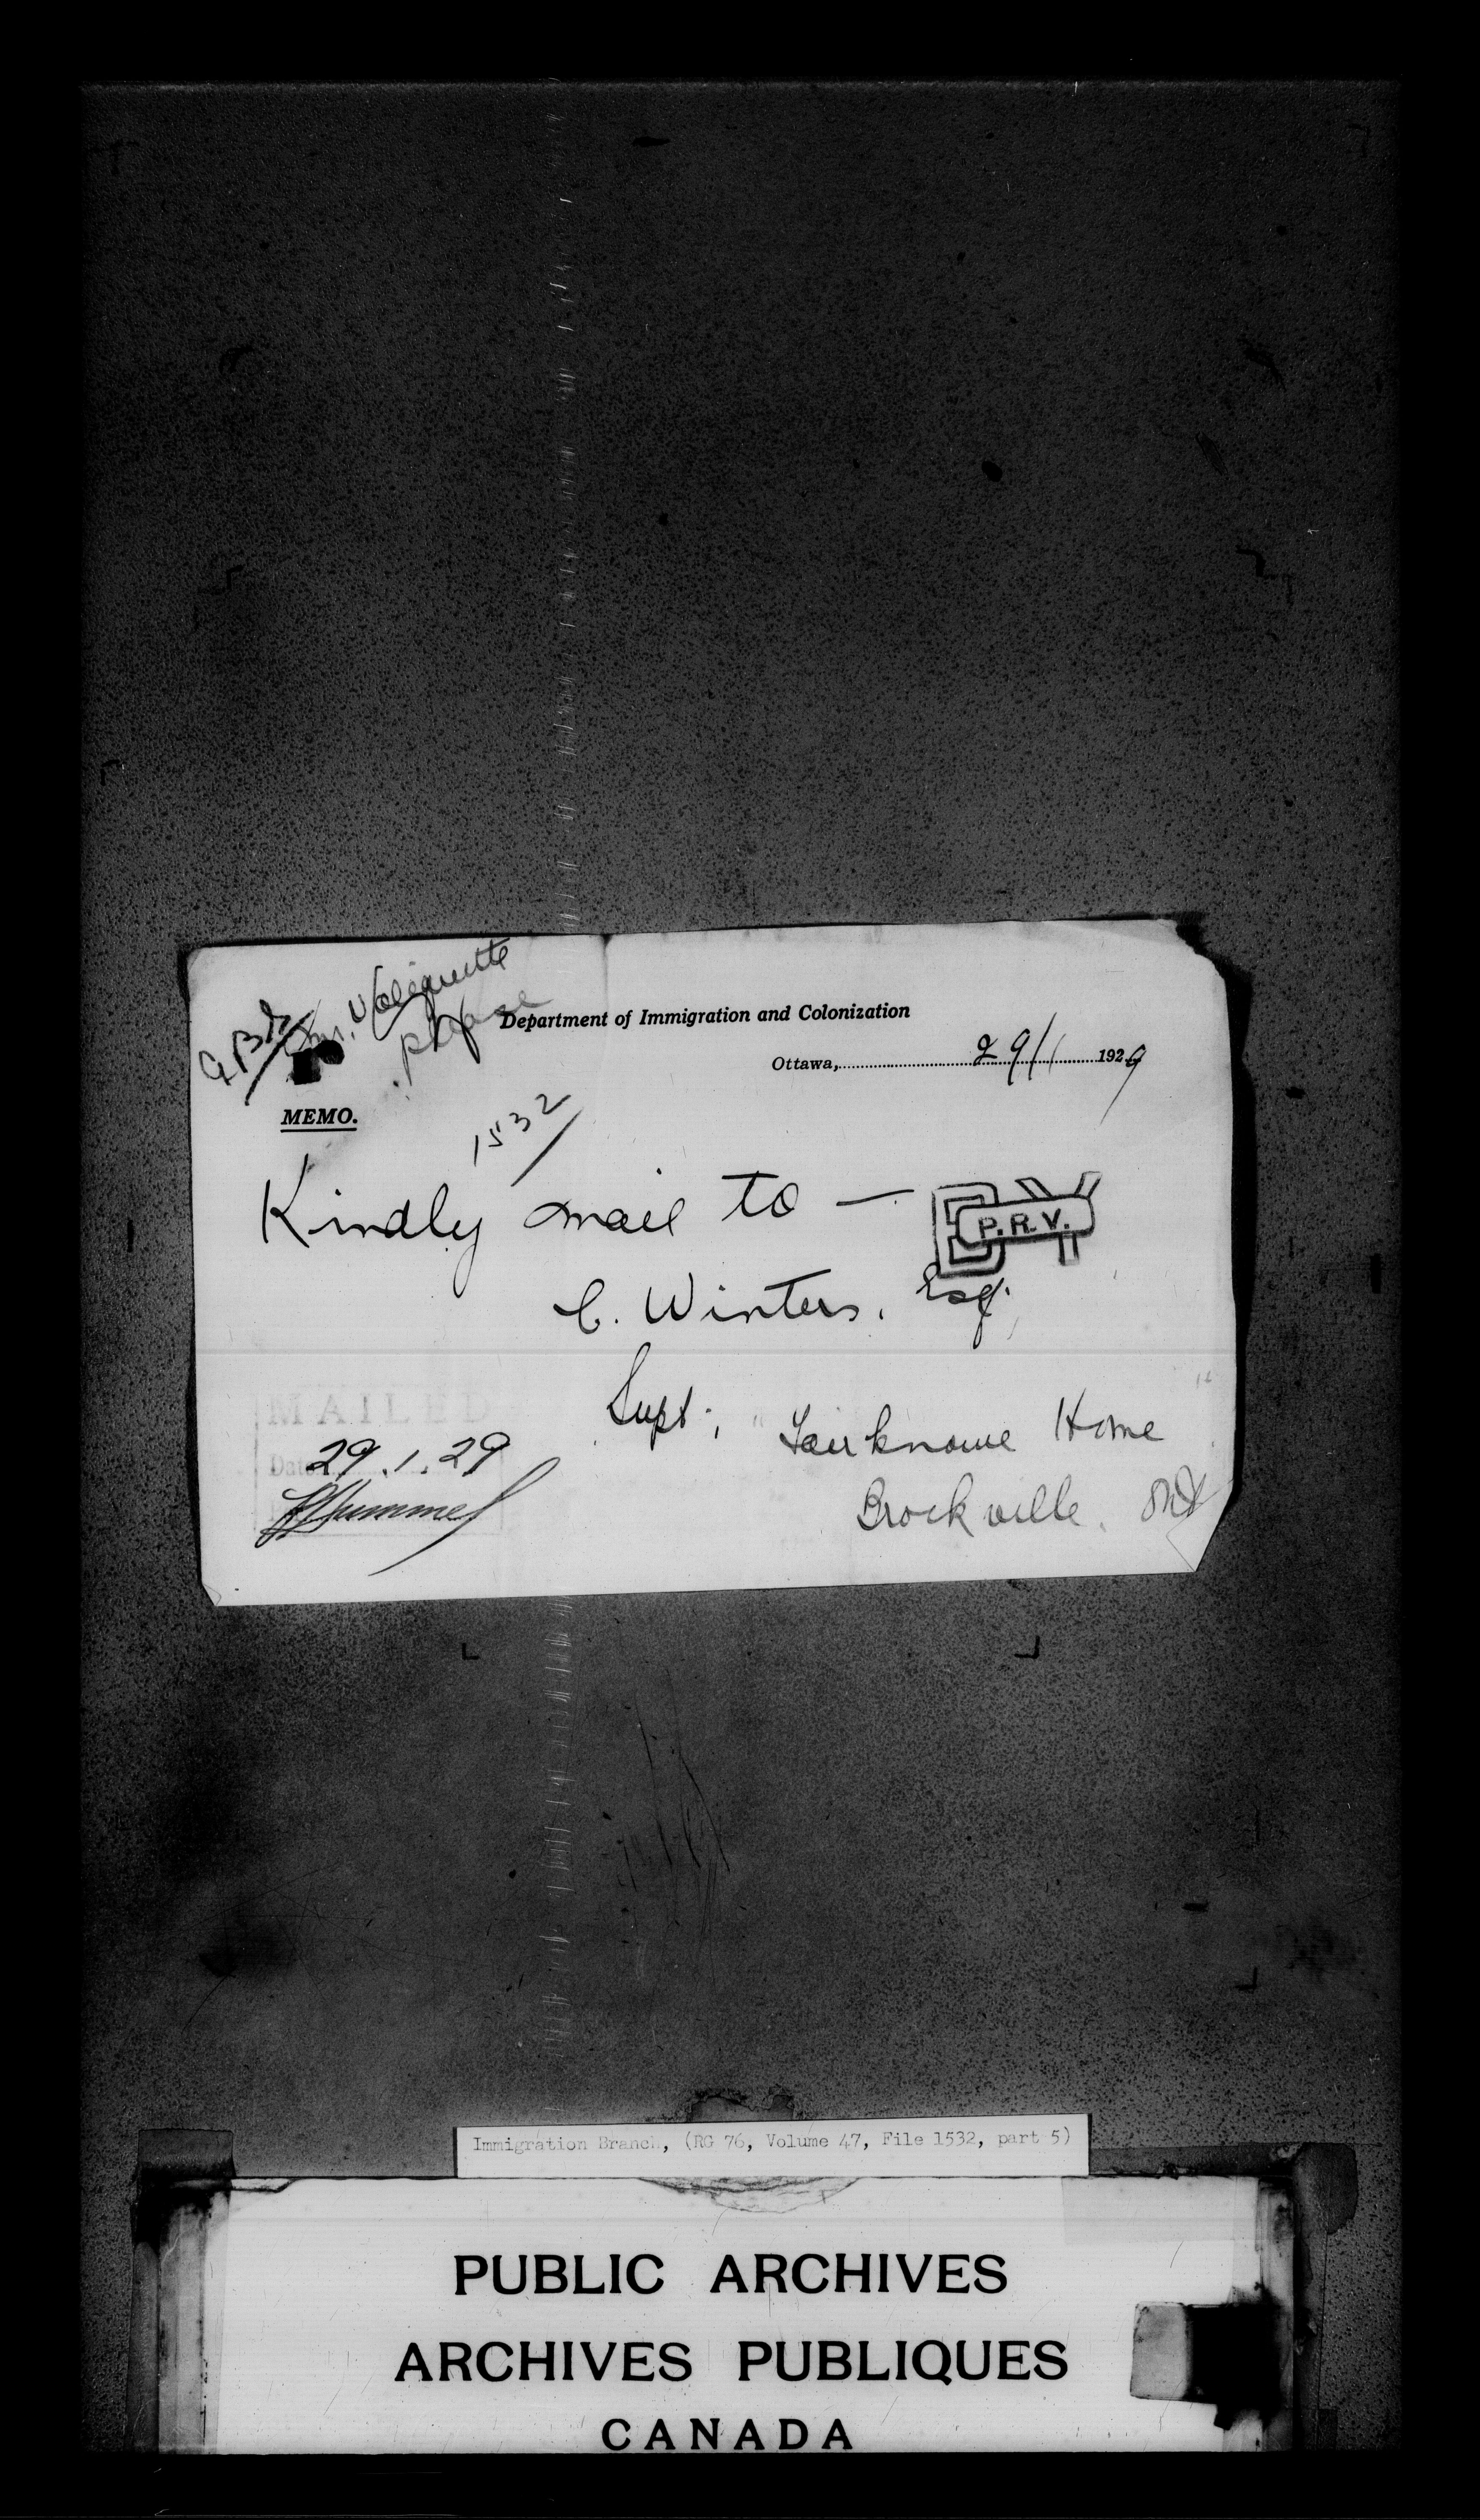 Valiquette
please
Department of Immigration and Colonization
Ottawa, 29/1 1929
MEMO.
1532
Kindly mail to —
P.R.V.
C. Winters. Esq.
Supt; "Fairknowe Home"
Brockville. Ont
MAILED
Date 29.1.29
Immigration Branch, (RG 76, Volume 47, File 1532, part 5)
PUBLIC ARCHIVES
ARCHIVES PUBLIQUES
CANADA